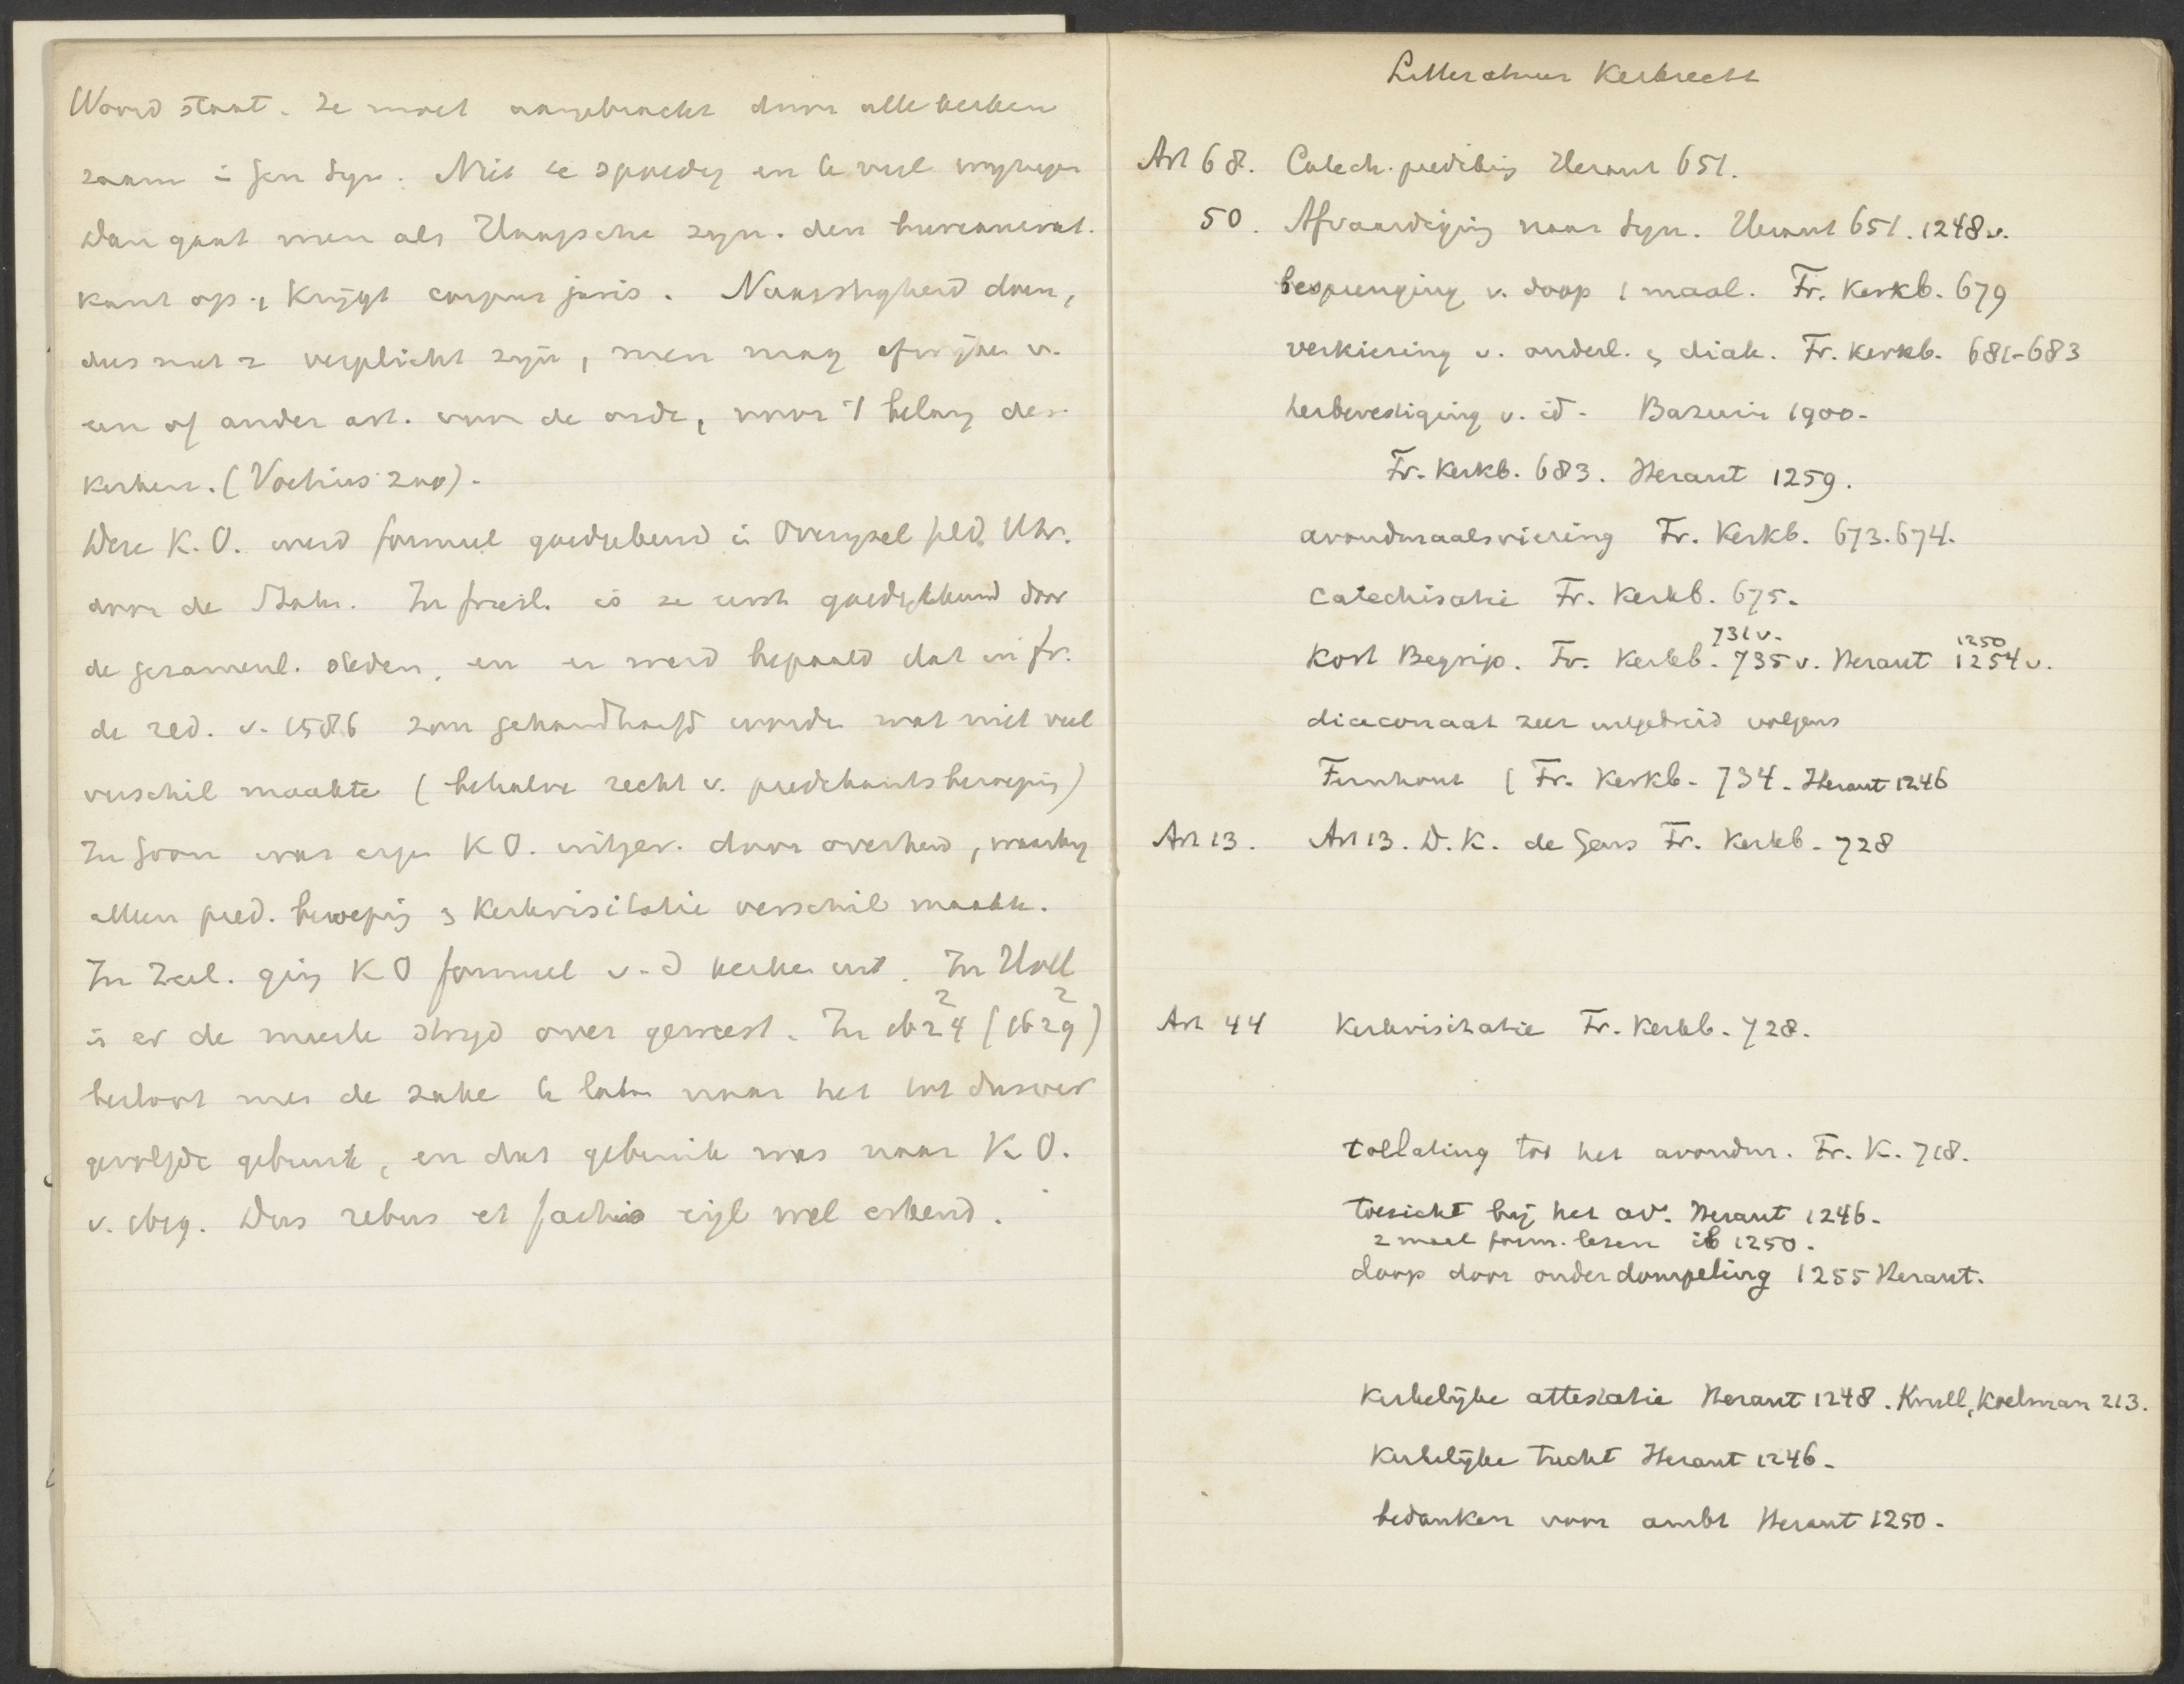 Woord staat. Ze moet aangebracht door alle kerken
saam in Gen Syn. Niet te spoedig en te veel wijzigen
Dan gaat men als Haagsche syn. den bureaucrat.
kant op, krijgt corpus juris. Naarstigheid doen,
dus niet verplicht zijn, men mag afwijken v.
een of ander art. voor de orde, voor 't belang der
kerken. (Voetius zoo).
Deze K.O. werd formeel goedgekeurd in Overysel Geld. Utr.
door de Staten. In Friesl. is ze eerst goedgekeurd door
de gezamenl. steden, en er werd bepaald dat in Fr.
de red. v. 1586 zou gehandhaafd worden wat niet veel
verschil maakte (behalve recht v. predikantsberoeping)
In Gron was eigen K O. uitgev. door overheid, waarbij
alleen pred. beroeping & Kerkvisitatie verschil maakte.
In Zeel. ging K O formeel v. d kerken uit. In Holl
is er de meeste strijd over geweest. In 1624 (1629)
besloot men de zake te laten naar het tot dusver
gevolgde gebruik, en dat gebruik was naar K O.
v. 1619. Dus rebus et factis eigl wel erkend.
Litteratuur Kerkrecht
Art 68. Catech. prediking Heraut 651.
50. Afvaardiging naar Syn. Heraut 651. 1248 v.
besprenging v. doop 1 maal. Fr. Kerkb. 679
verkiezing v. ouderl. & diak. Fr. Kerkb. 681-683
herbevestiging v. id. Bazuin 1900.
Fr. Kerkb. 683. Heraut 1259.
avondmaalsviering Fr. Kerkb. 673. 674.
Catechisatie Fr. Kerkb. 675.
731 v. 1250
Kort Begrip. Fr. Kerkb. 735 v. Heraut 1254 v.
diaconaat zeer uitgebreid volgens
Fernhout (Fr. Kerkb. 734. Heraut 1246
Art 13. Art 13. D.K. de Gens Fr. Kerkb. 728
Art 44 Kerkvisitatie Fr. Kerkb. 728.
toelating tot het avondm. Fr. K. 718.
toezicht bij het av. Heraut 1246.
2 maal form. lezen ib 1250.
doop door onderdompeling 1255 Heraut.
Kerkelijke attestatie Heraut 1248. Krull, Koelman 213.
Kerkelijke tucht Heraut 1246.
bedanken voor ambt Heraut 1250.